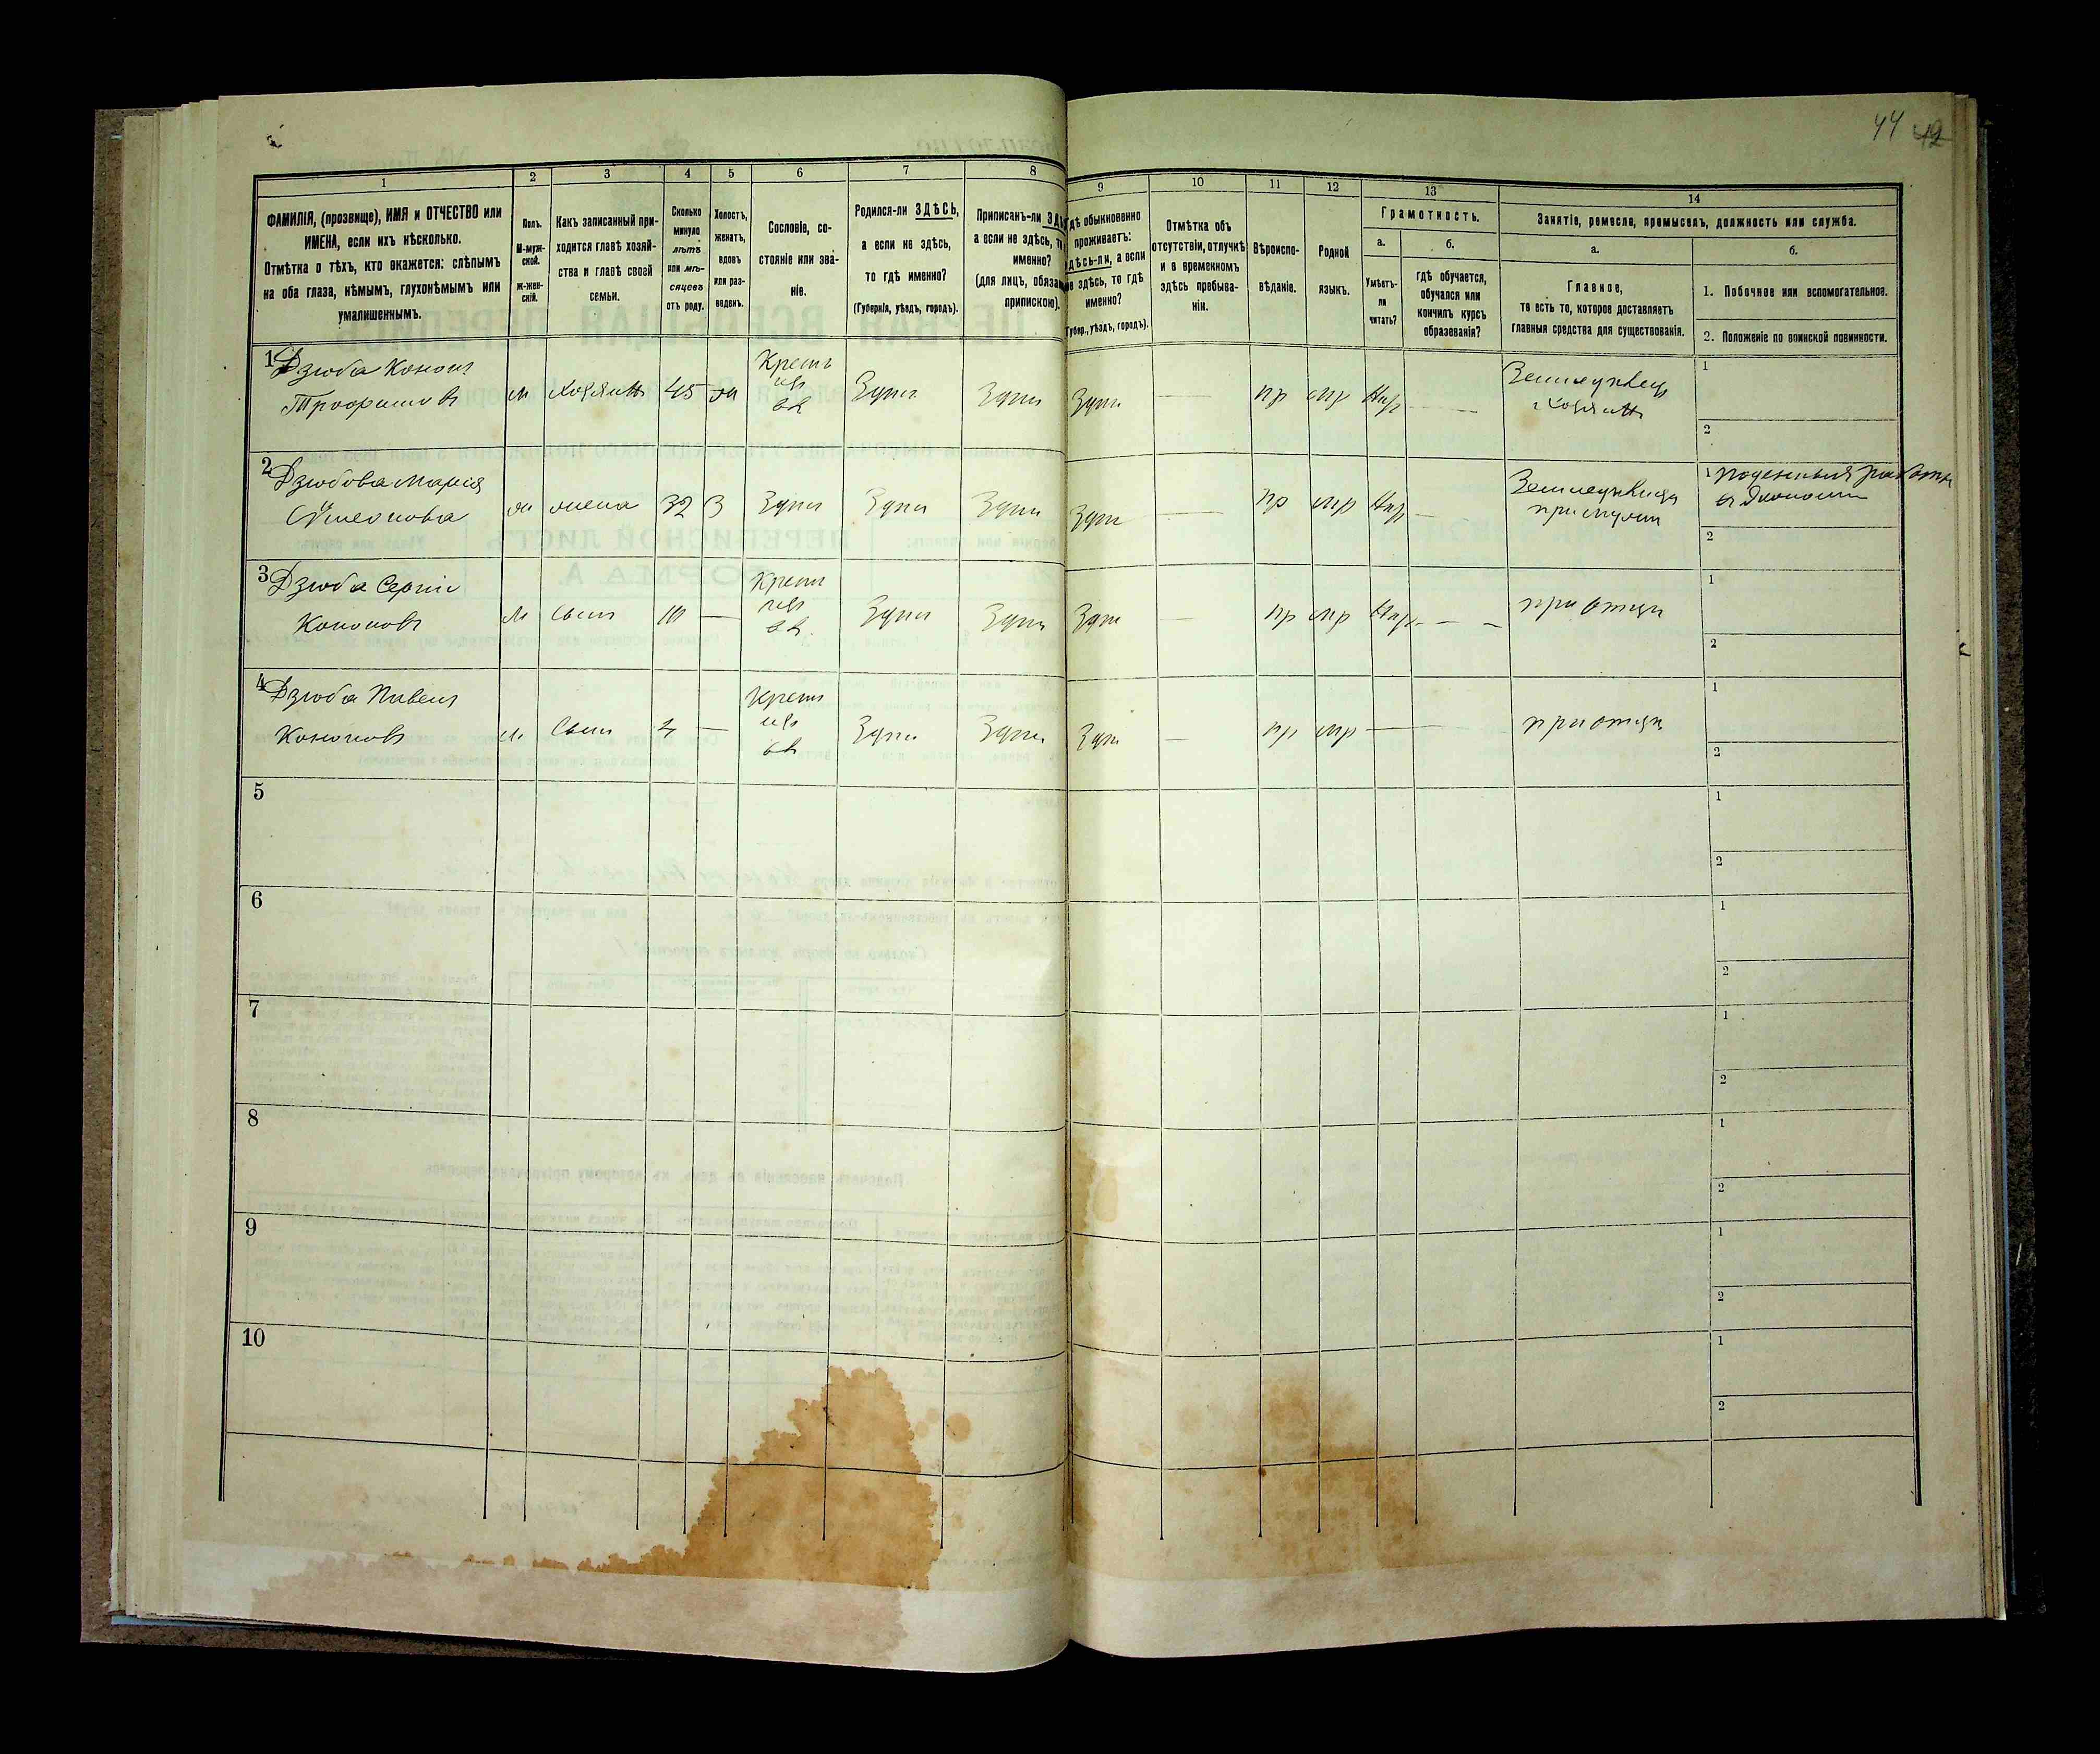 44 42
1 2 3 4 5 6 7 8 9 10 11 12 13 14
ФАМИЛІЯ, (прозвище), ИМЯ и ОТЧЕСТВО или
ИМЕНА, если ихъ нѣсколько.
Отмѣтка о тѣхъ, кто окажется: слѣпымъ
на оба глаза, нѣмымъ, глухонѣмымъ или
умалишеннымъ.
Полъ.
М-муж-
ской.
Ж-жен-
скій.
Какъ записанный при-
ходится главѣ хозяй-
ства и главѣ своей
семьи.
Сколько
минуло
лѣтъ
или мѣ-
сяцевъ
отъ роду.
Холостъ,
женатъ,
вдовъ
или раз-
веденъ.
Сословіе, со-
стояніе или зва-
ніе.
Родился-ли ЗДѢСЬ,
а если не здѣсь,
то гдѣ именно?
(Губернія, уѣздъ, городъ).
Приписанъ-ли
а если не здѣсь,
именно?
(для лицъ,
припискою).
обыкновенно
проживаетъ:
а если
здѣсь, то гдѣ
именно?
уѣздъ, городъ).
Отмѣтка объ
отсутствіи, отлучкѣ
и о временномъ
здѣсь пребыва-
ніи.
Вѣроиспо-
вѣданіе.
Родной
языкъ.
Грамотность.
а.
Умѣетъ-
ли
читать?
б.
гдѣ обучается,
обучался или
кончилъ курсъ
образованія?
Занятіе, ремесло, промыселъ, должность или служба.
а.
Главное,
то есть то, которое доставляетъ
главныя средства для существованія.
б.
1. Побочное или вспомогательное.
2. Положеніе по воинской повинности.
1 Дзюба Кононъ
Трофимовъ м хозяинъ 45 ж
Крестьянъ
Здѣсь Здѣсь Здѣсь — пр мр Нѣтъ —
Земледѣлецъ
хозяинъ
1
2
2 Дзюбова Марія
Симеонова ж жена 32 З Здѣсь Здѣсь Здѣсь — пр мр Нѣтъ —
1 поденныя работы
въ экономіи
2
3 Дзюба Сергій
Кононовъ м сынъ 10 — Здѣсь Здѣсь Здѣсь — пр мр Нѣтъ — —
при отцѣ
1
2
4 Дзюба Павелъ
Кононовъ м Сынъ — Здѣсь Здѣсь Здѣсь — пр мр — —
при отцѣ
1
2
5
1
2
6
1
2
7
1
2
8
1
2
9
1
2
10
1
2